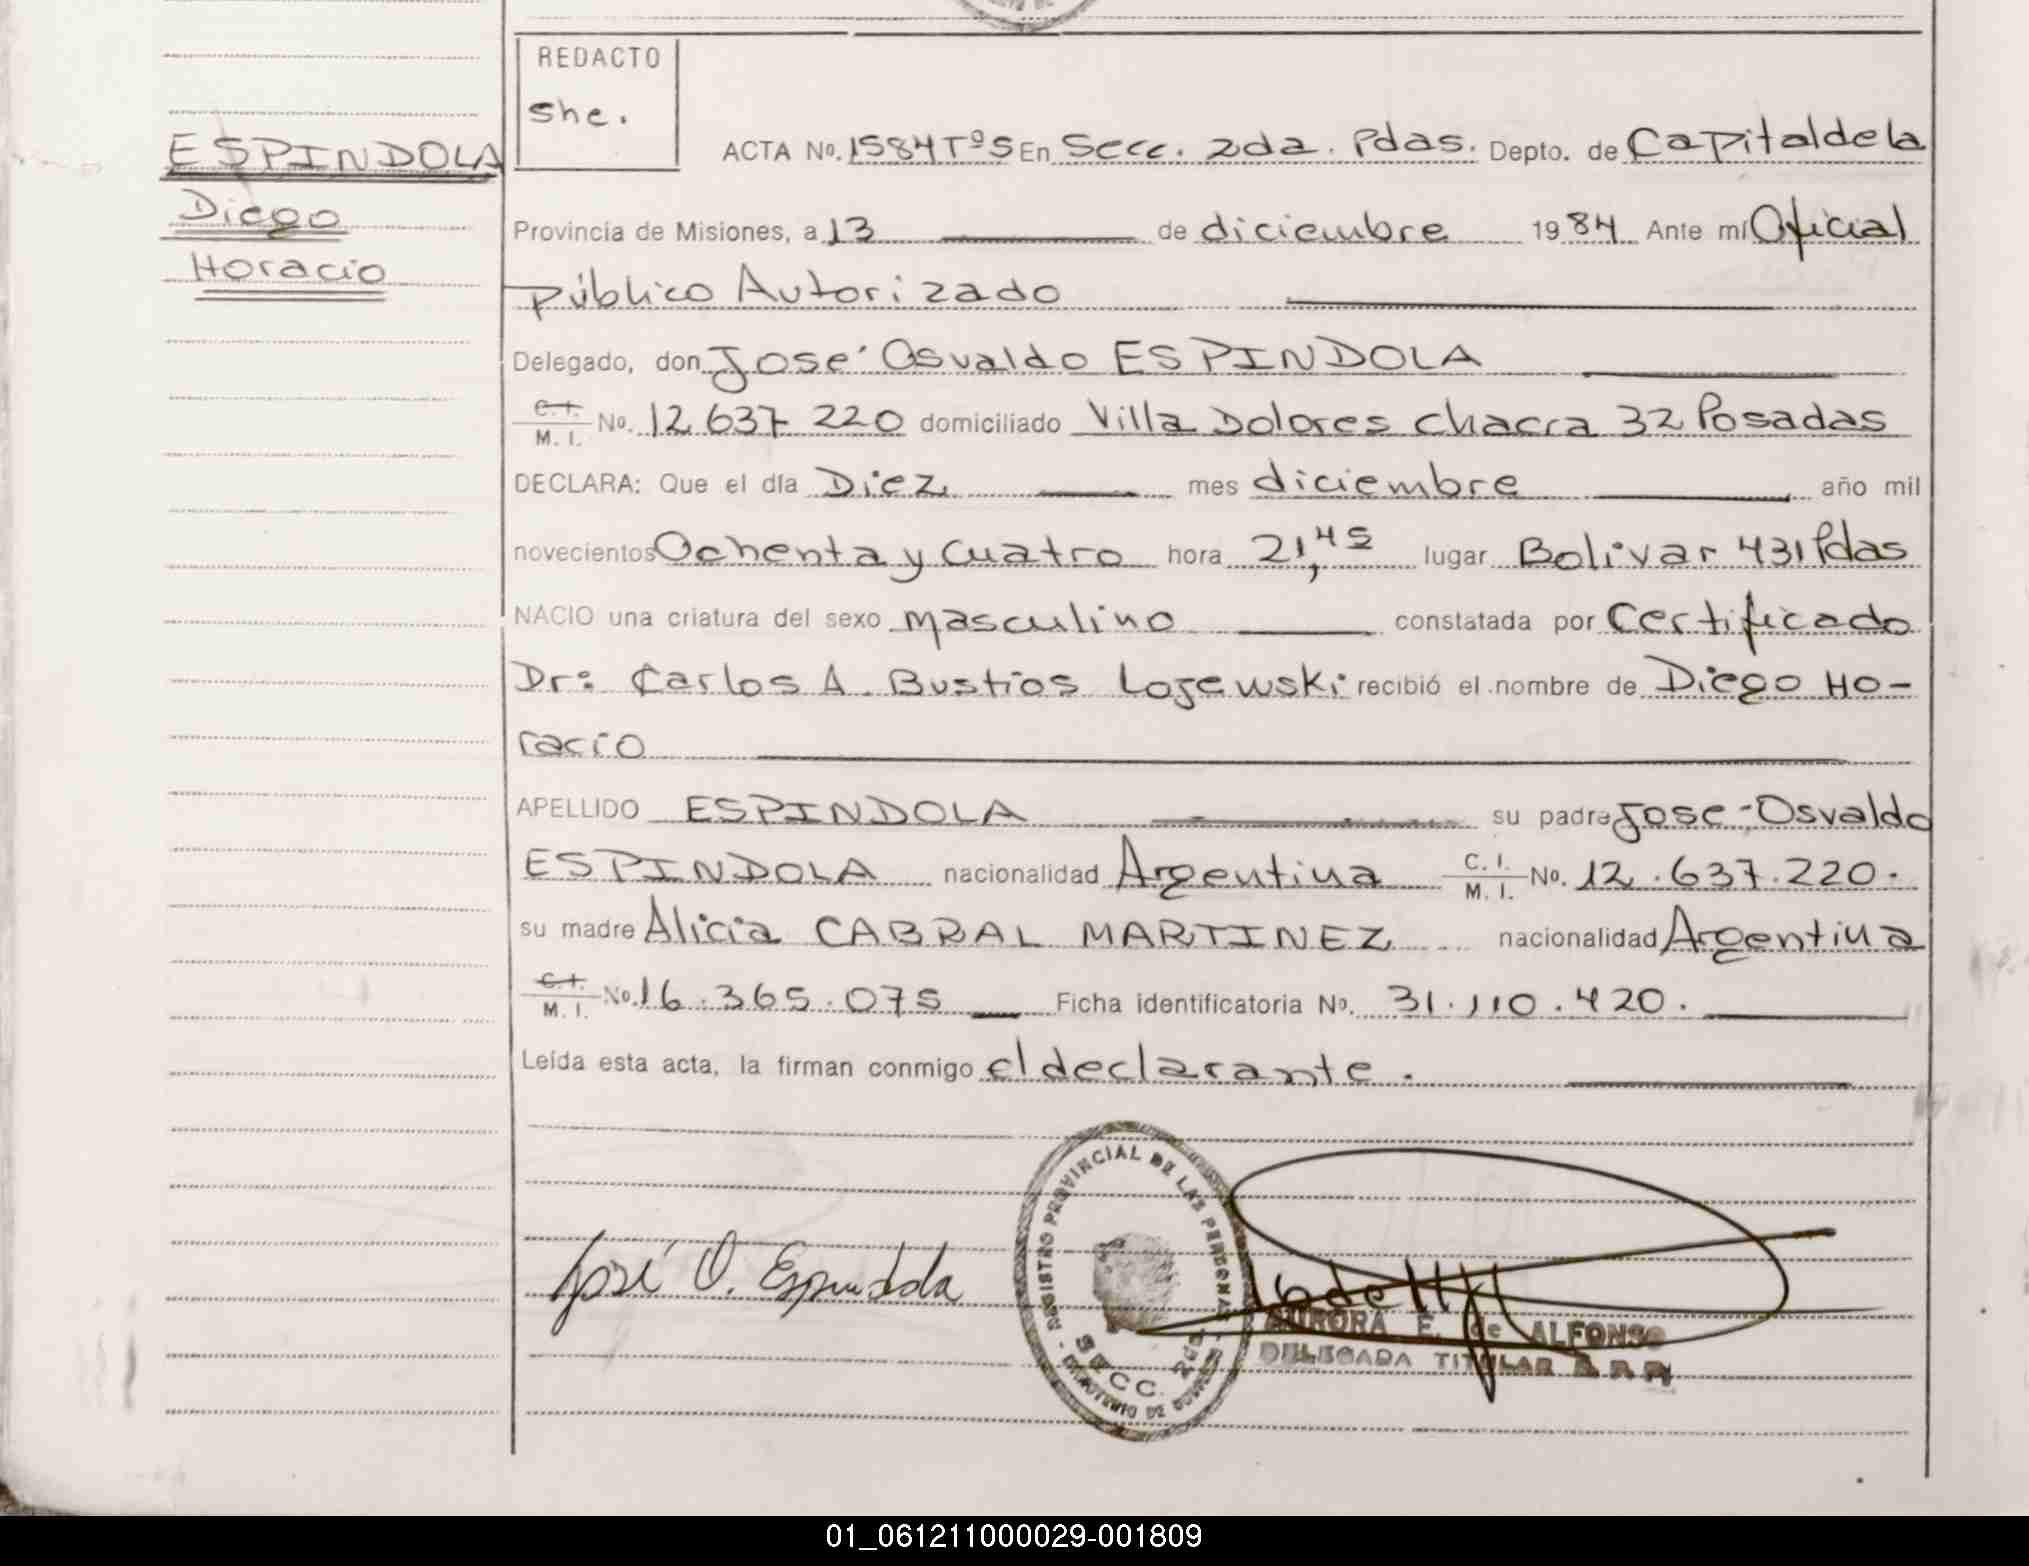 REDACTO
She.
ESPINDOLA
Diego
Horacio
ACTA No. 1584 Tº5 En Secc. 2da. Pdas. Depto. de Capital de la
Provincia de Misiones, a 13 de diciembre 1984 Ante mí Oficial
público Autorizado
Delegado, don José Osvaldo ESPINDOLA
C.I. M.I. No. 12.637 220 domiciliado Villa Dolores Chacra 32 Posadas
DECLARA: Que el día Diez mes diciembre año mil
novecientos Ochenta y Cuatro hora 21,45 lugar Bolivar 431 Pdas
NACIO una criatura del sexo masculino constatada por Certificado
Dr: Carlos A. Bustios Lojewski recibió el nombre de Diego Ho-
racio
APELLIDO ESPINDOLA su padre Jose-Osvaldo
ESPINDOLA nacionalidad Argentina C.I. M.I. No. 12.637.220.
su madre Alicia CABRAL MARTINEZ nacionalidad Argentina
C.I. M.I. No. 16.365.075 Ficha identificatoria No. 31.110.420.
Leída esta acta, la firman conmigo el declarante.
José O. Espindola
REGISTRO PROVINCIAL DE LAS PERSONAS
SECC. 2da.
AURORA E. de ALFONSO
DELEGADA TITULAR
01_061211000029-001809